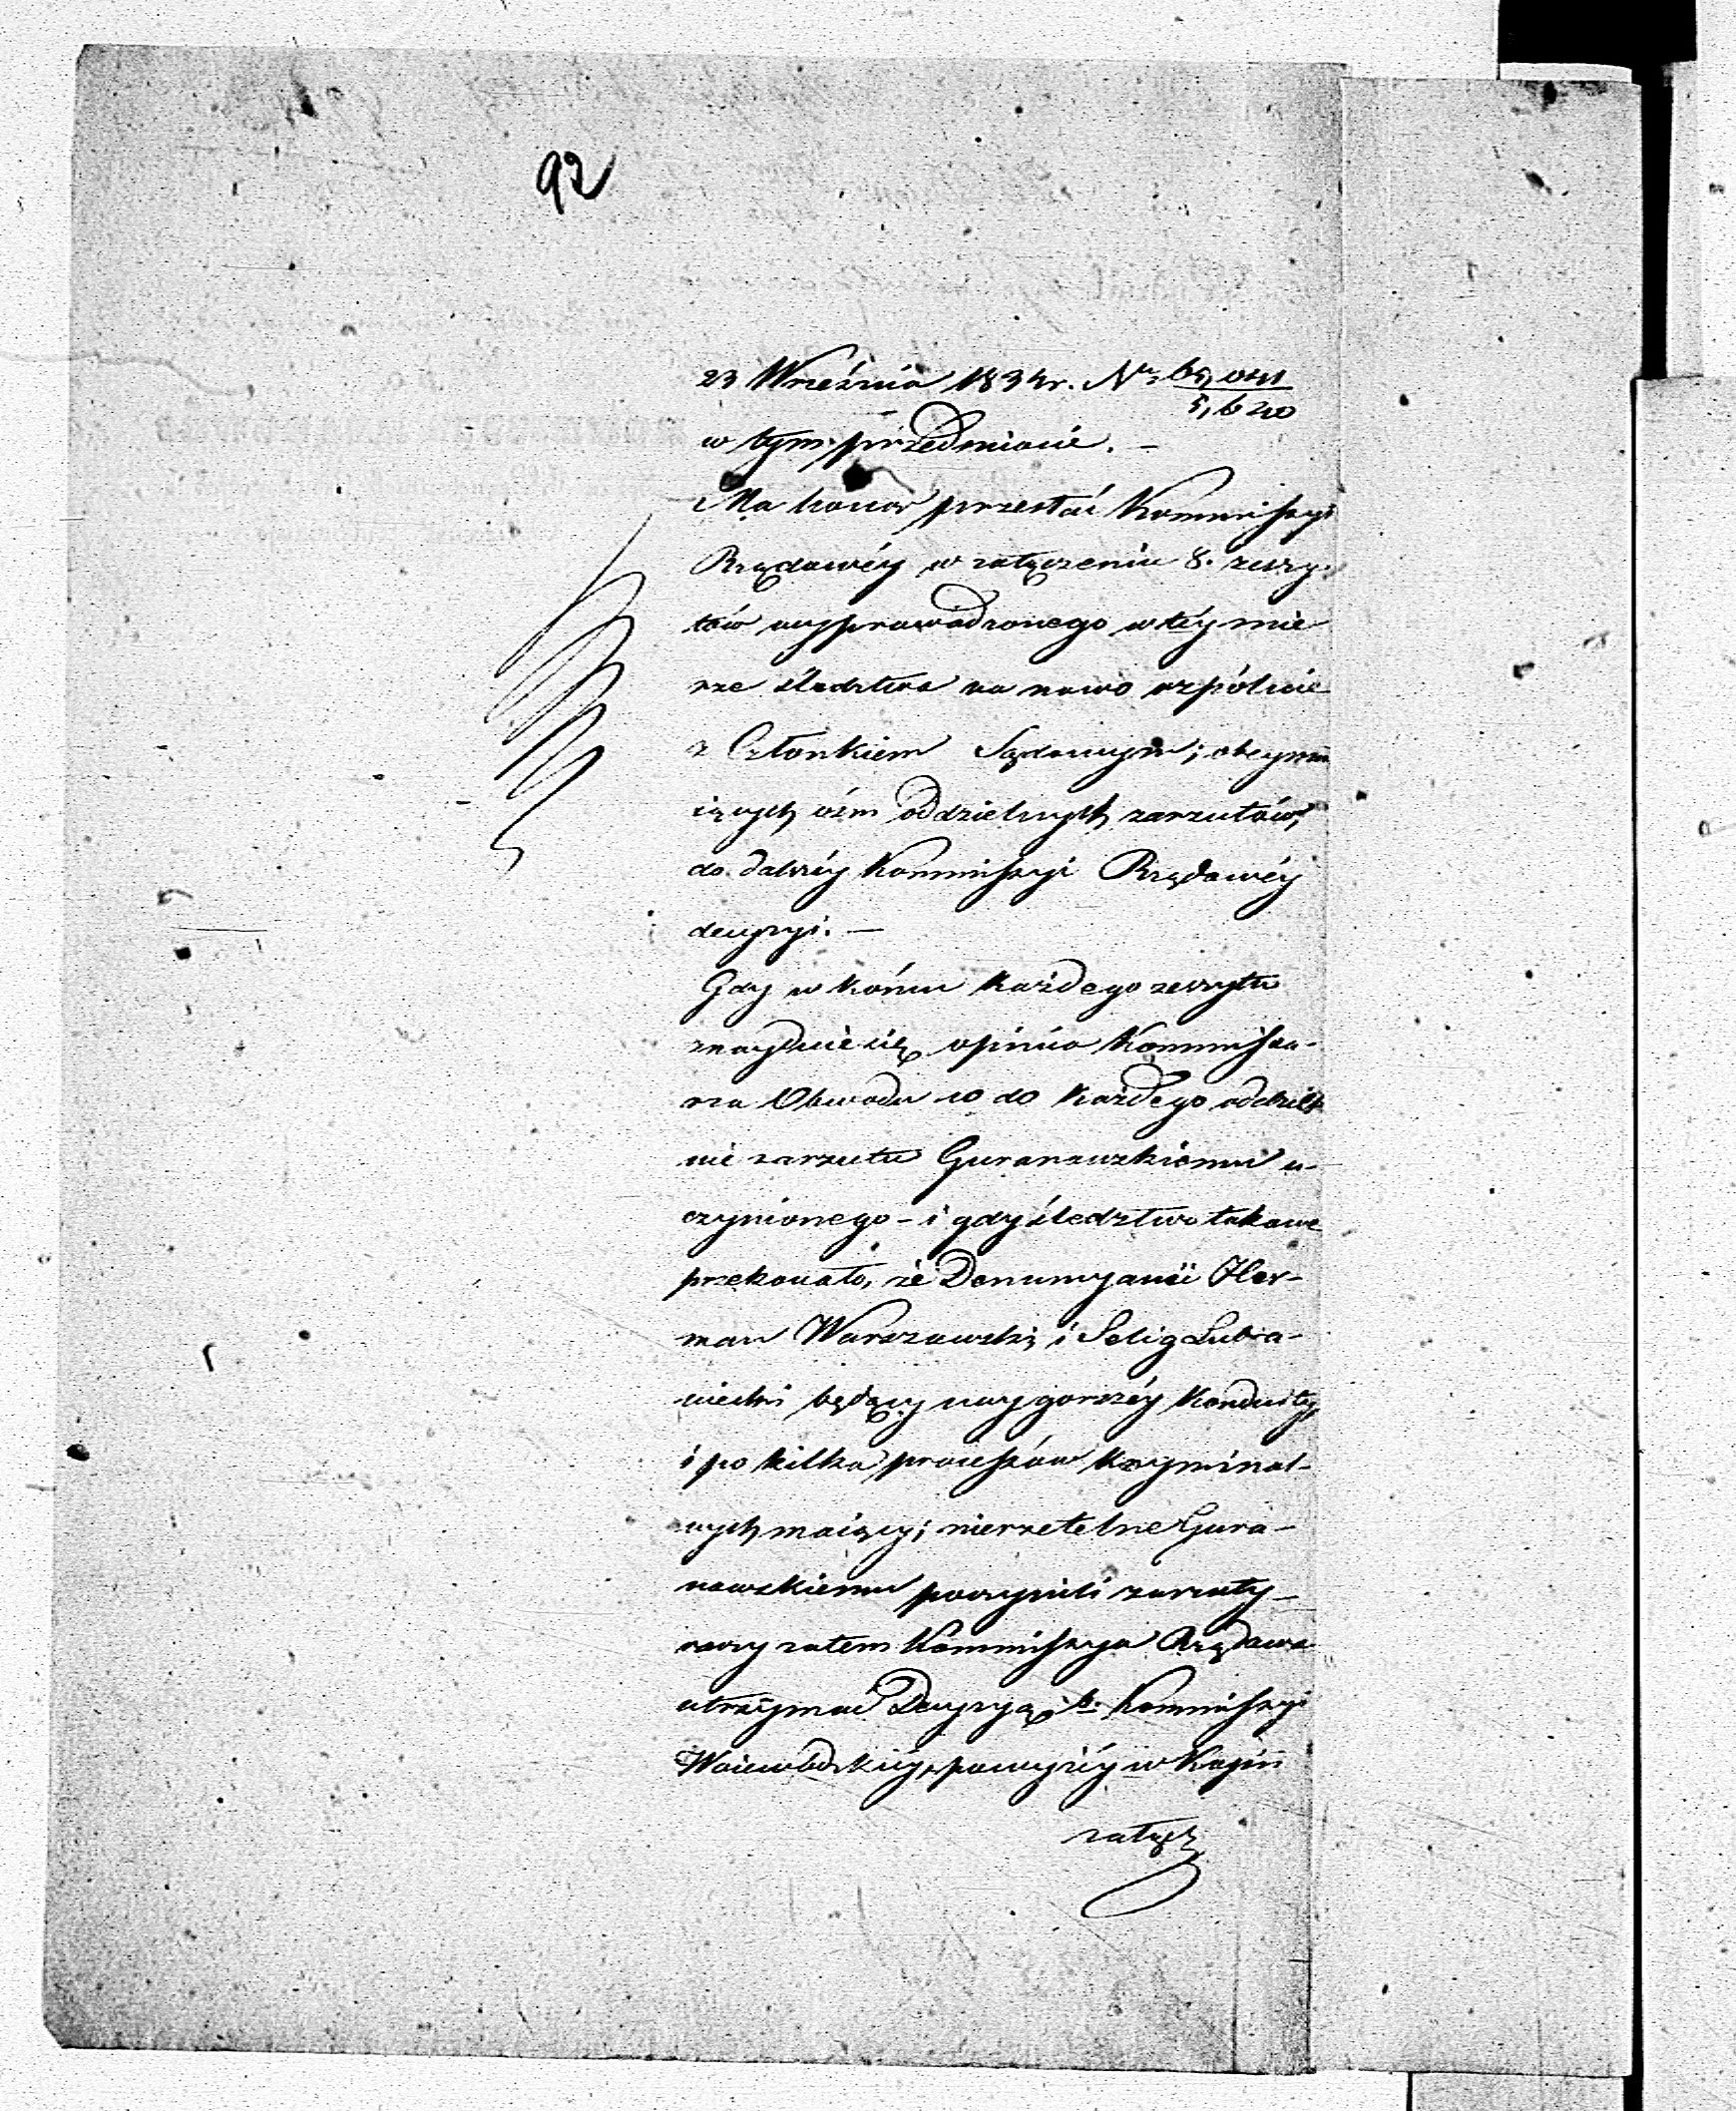 92
23 Września 1834r. Nr
w tym przedmiocie. —
Ma honor przesłać Kommissyi
Rządowéy w załączeniu 8. zeszy-
tów wyprowadzonego w téy mie
rze śledztwa na nowo wspólnie
z Członkiem Sądowym; obeymu
iących ośm oddzielnych zarzutów,
do dalszéy Kommissyi Rządowéy
decyzyi. —
Gdy w końcu każdego zeszytu
znayduie się opinia Kommissa-
rza Obwodu co do każdego oddziel
nie zarzutu Guranowskiemu u-
czynionego - i gdy śledztwo takowe
przekonało, że Denuncyanci Her-
man Warszawski i Selig Lubra-
niecki będący naygorszéy konduity
i po kilka processów kryminal-
nych maiący; nierzetelne Gura-
nowskiemu poczynili zarzuty —
raczy zatem Kommissya Rządowa
utrzymać Decyzyą b. Kommissyi
Woiewódzkiéy, powyżéy w Kopii
załącz